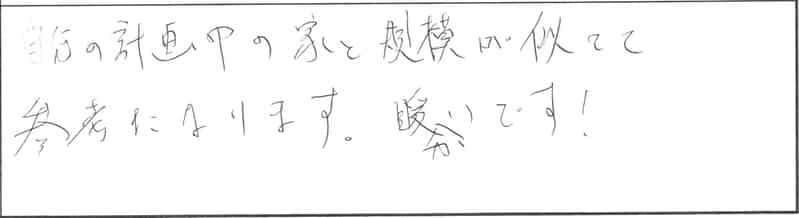 自分の計画中の家と規模が似てて
参考になります。暖かいです!